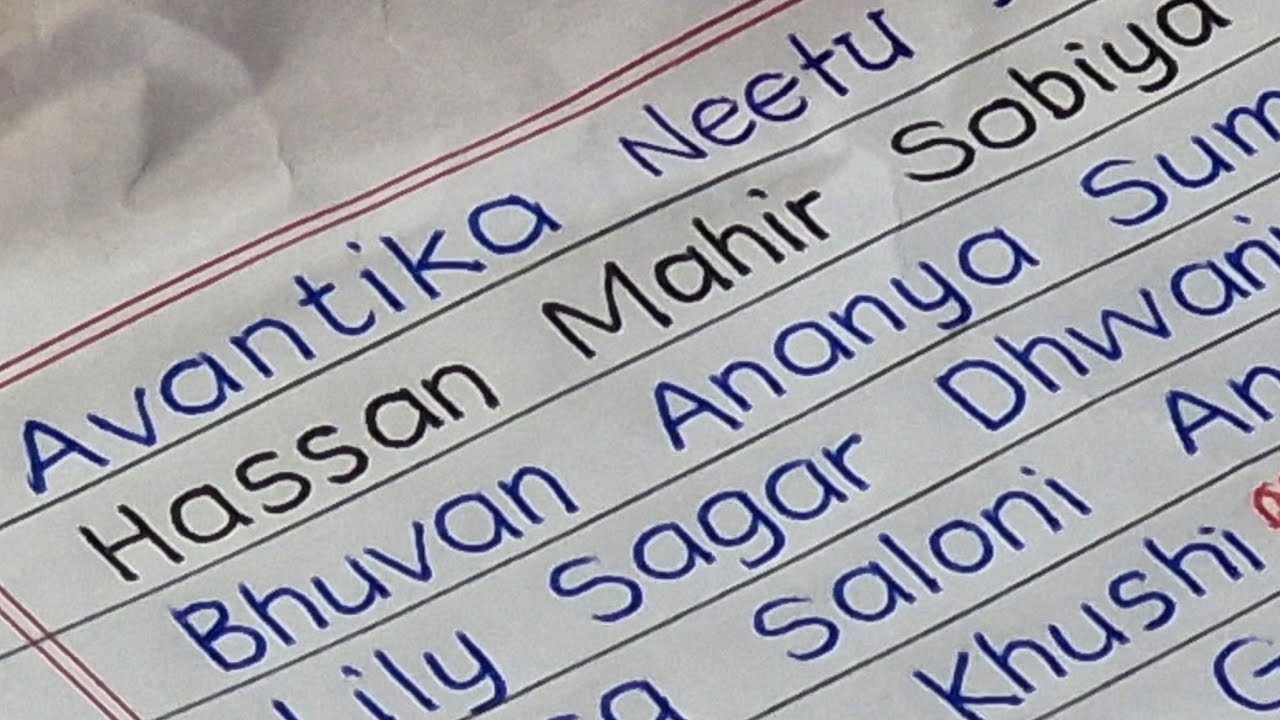 Avantika Neetu
Hassan Mahir Sobiya
Bhuvan Ananya
Lily Sagar Dhwani
Saloni
Khushi